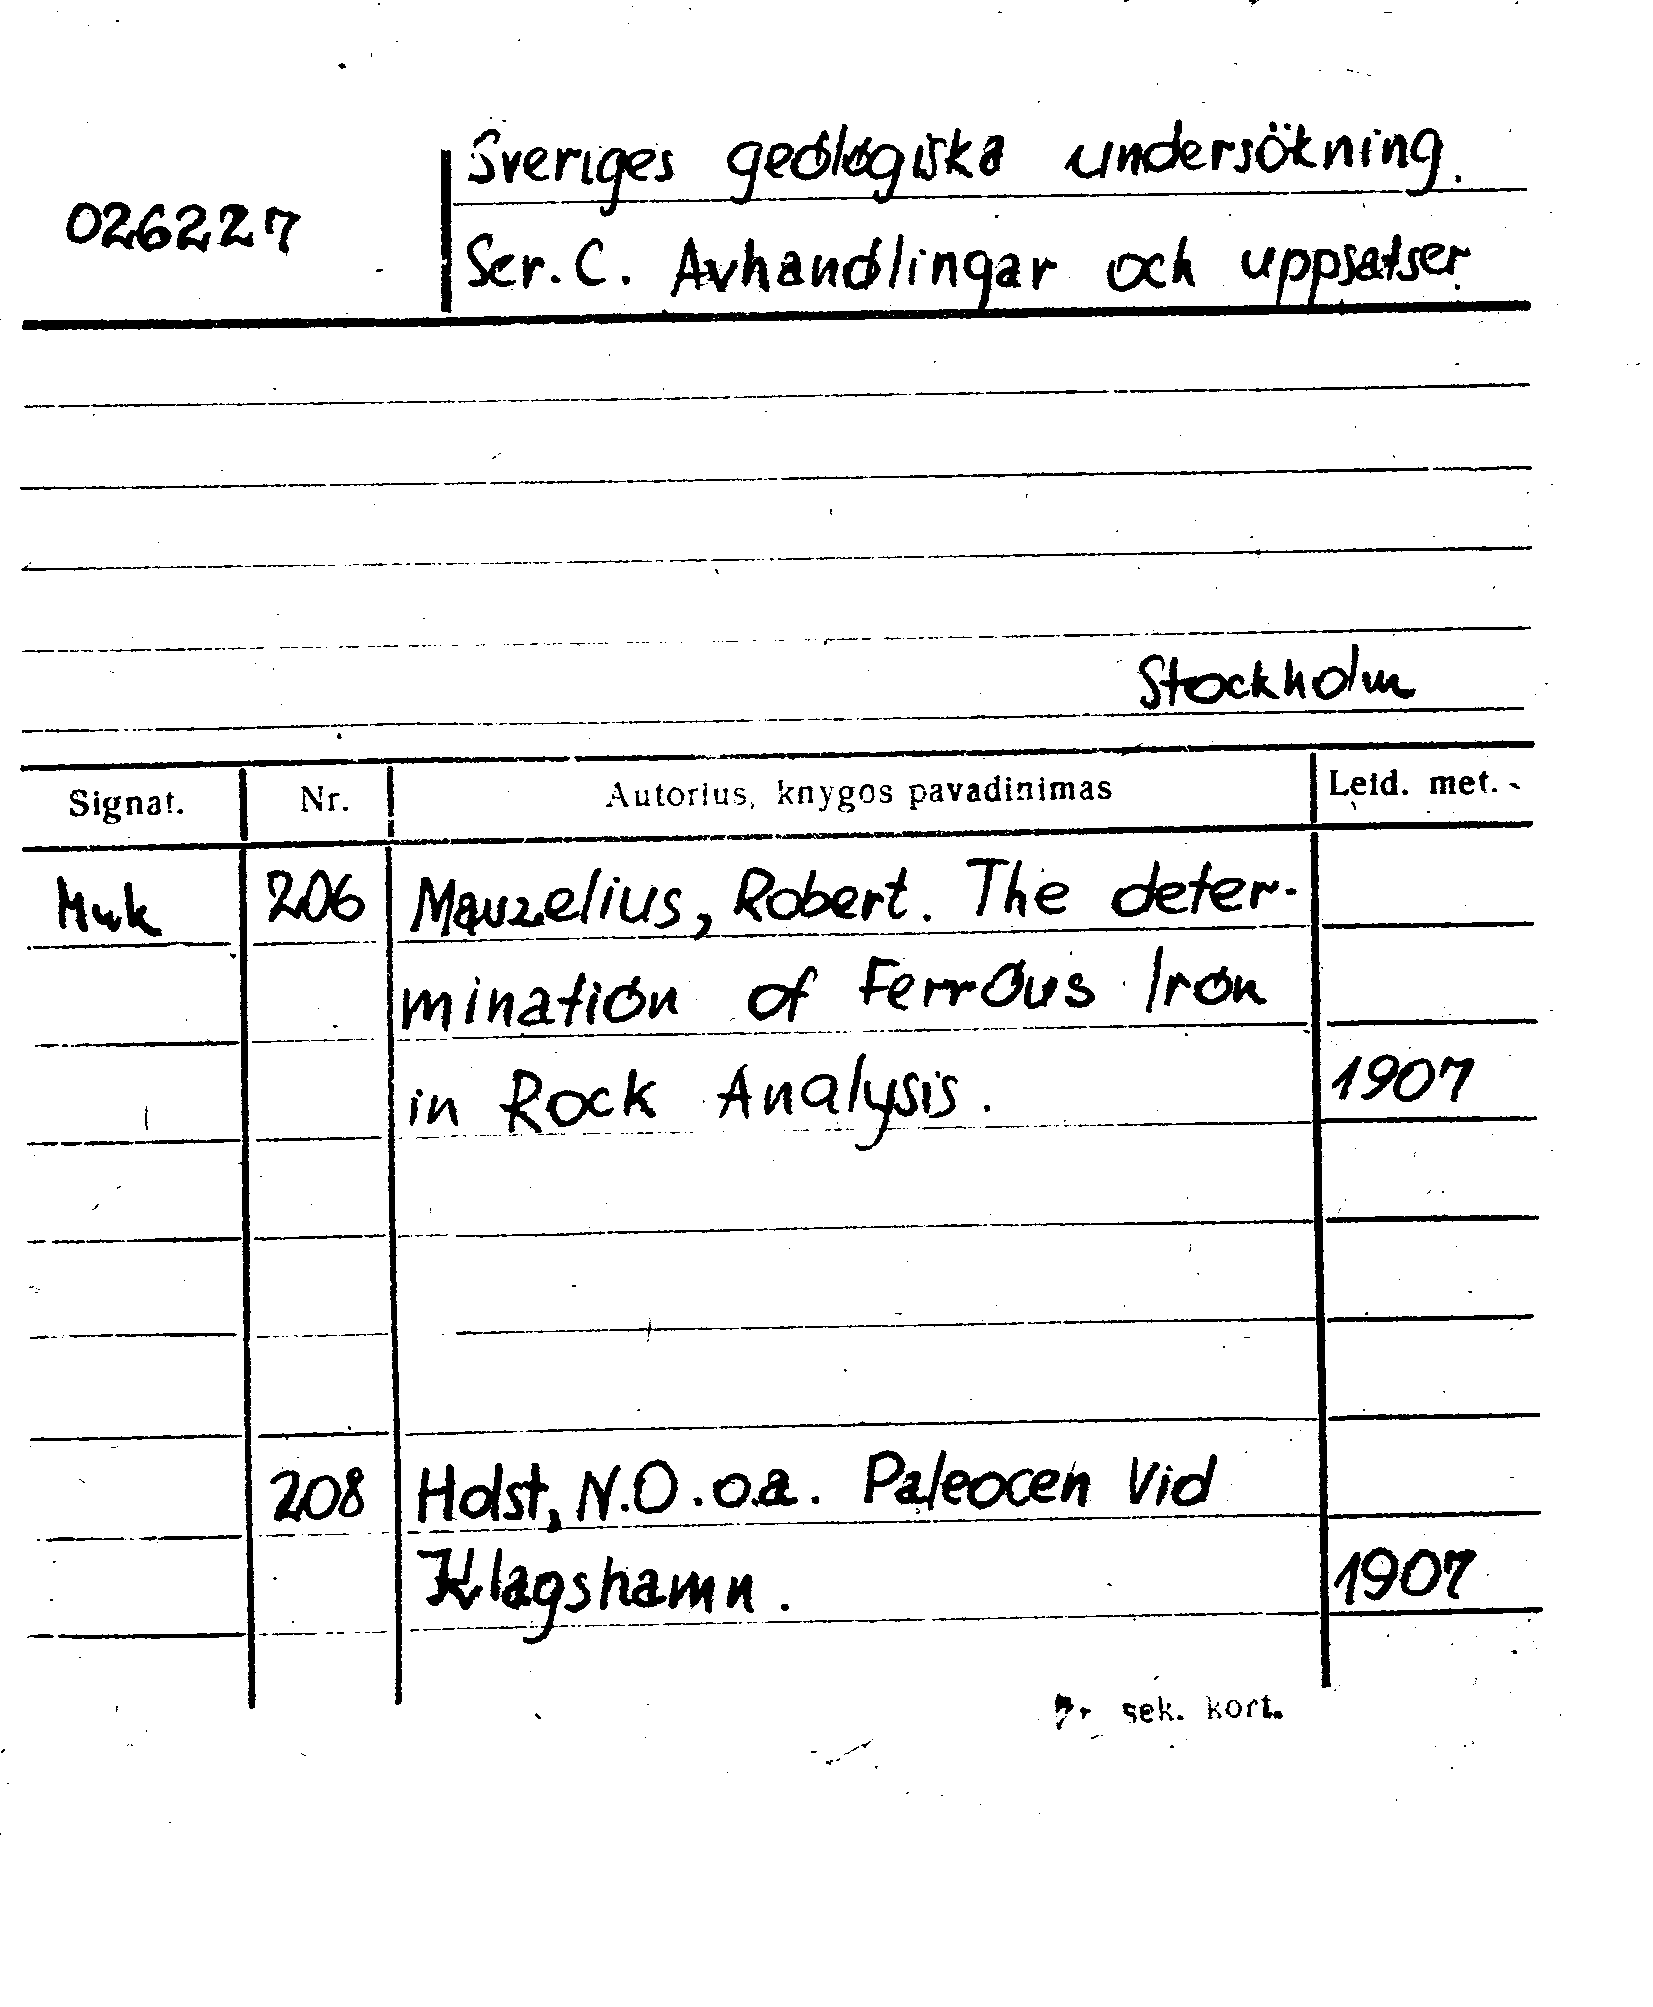 Sveriges geologiska undersökning.
026227
Ser. C. Avhandlingar och uppsatser.
Stockholm
Signat. Nr. Autorius, knygos pavadinimas Leid. met.
Muk 206 Mauzelius, Robert. The deter-
mination of Ferrous Iron
in Rock Analysis. 1907
208 Holst, N.O. o.a. Paleocen Vid
Klagshamn. 1907
sek. kort.